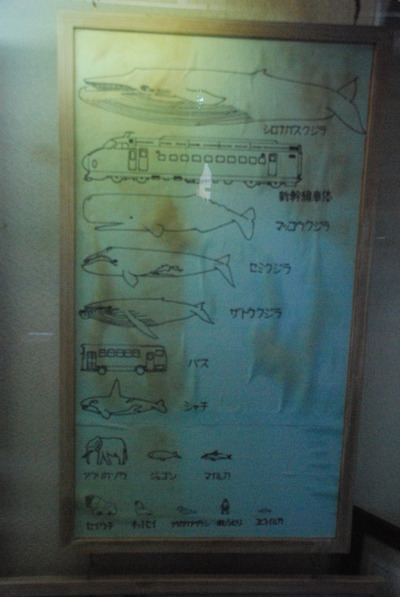 シロナガスクジラ
新幹線車体
マッコウクジラ
セミクジラ
ザトウクジラ
バス
シャチ
アフリカゾウ
ジュゴン
マイルカ
セイウチ
オットセイ